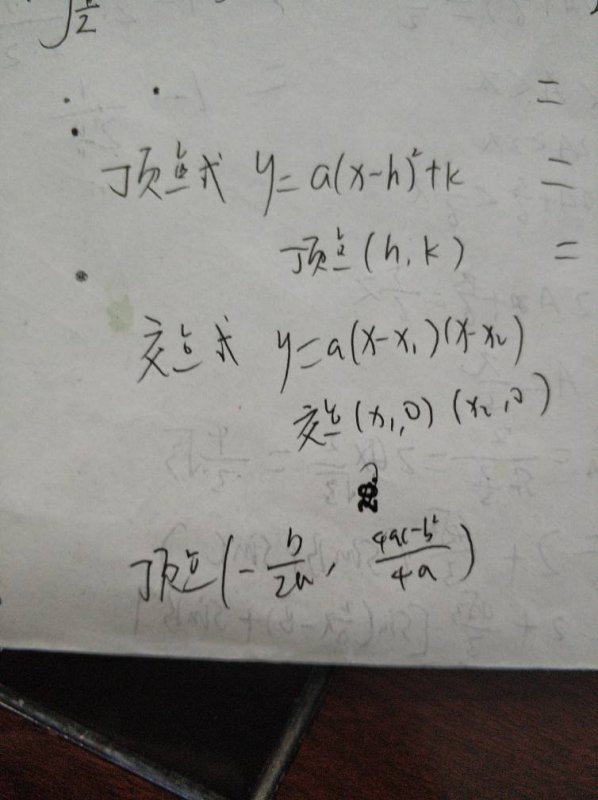 ∫ π/2
=
顶点式 y=a(x-h)²+k =
顶点(h,k) =
交点式 y=a(x-x₁)(x-x₂)
交点(x₁,0)(x₂,0)
顶点(-b/2a, 4ac-b²/4a)